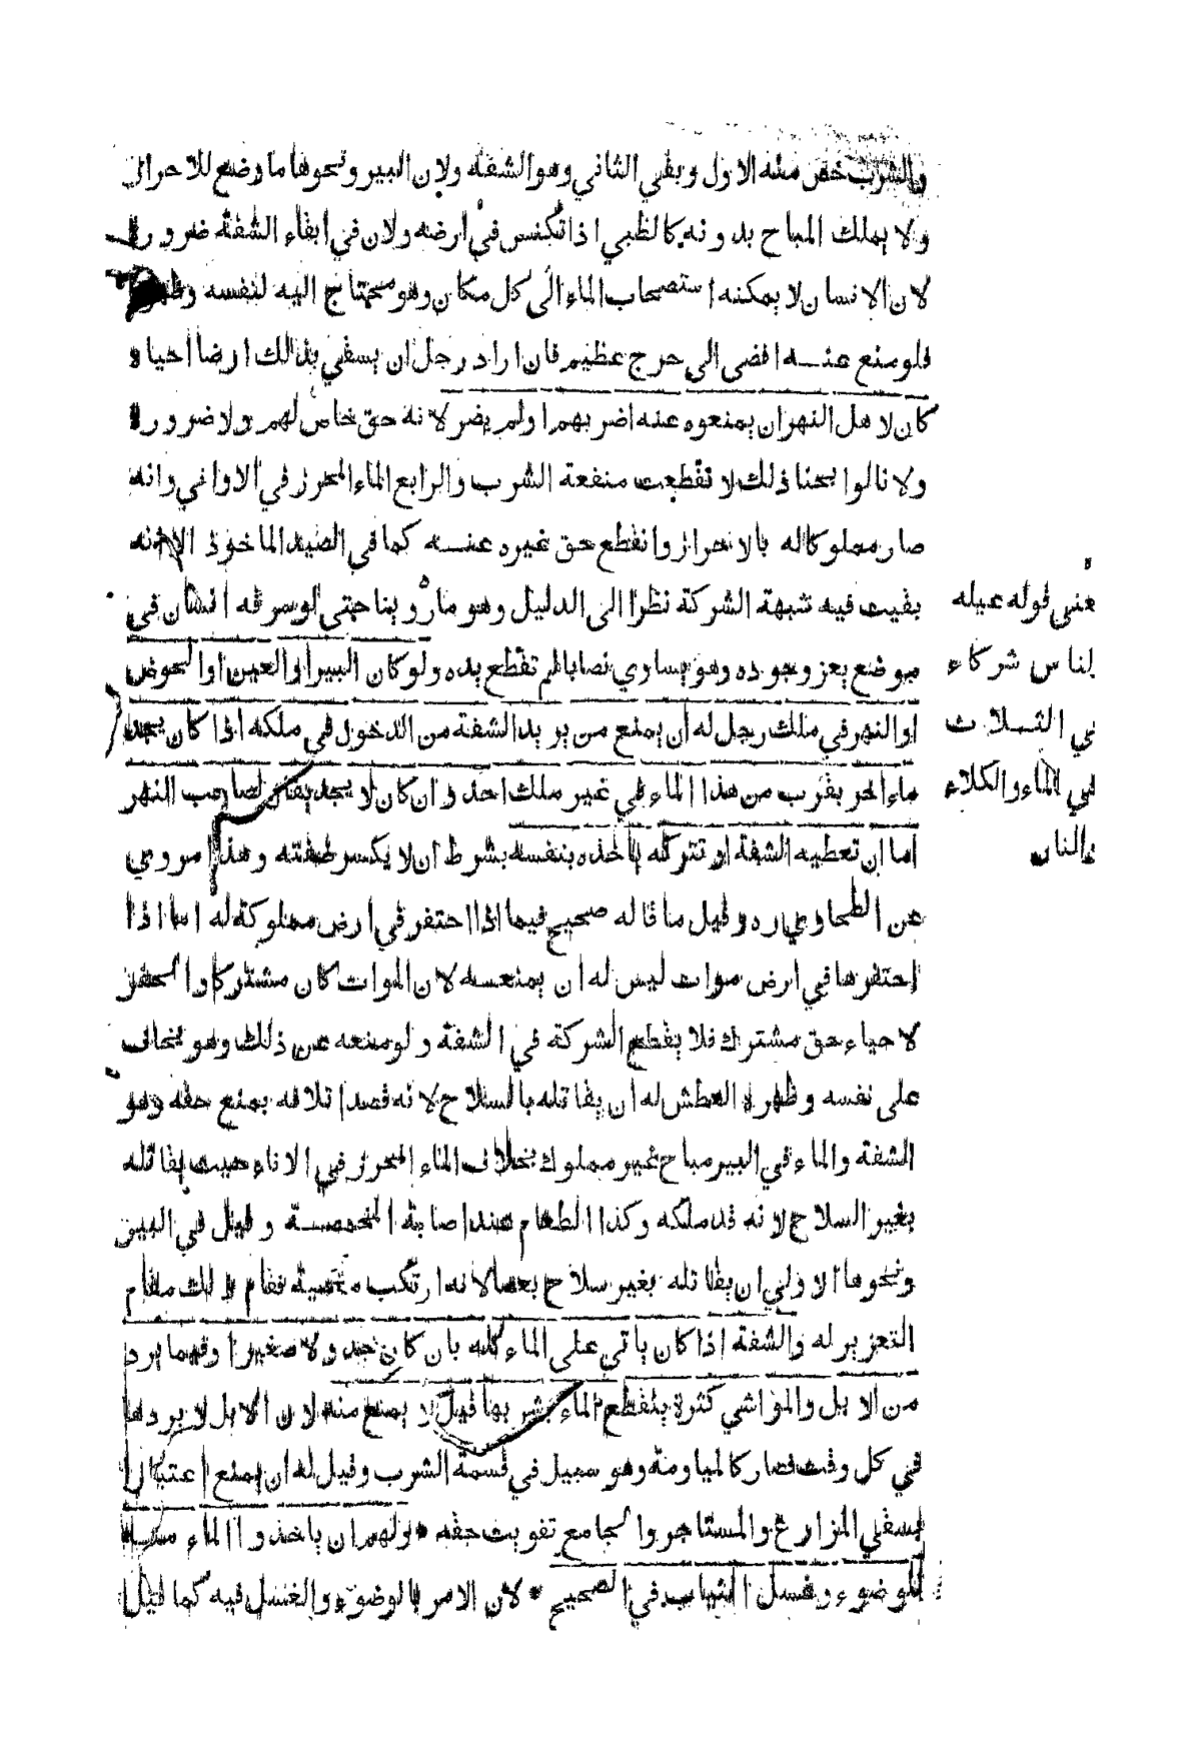 والشرب خص منه الاول وبقي الثاني وهو الشفة ولان البير ونحوها ما وضع للاحراز
ولا يملك المباح بدونه كالظبي اذا تكنس في ارضه ولان في ابقاء الشفة ضرورة
لان الانسان لا يمكنه استصحاب الماء الى كل مكان وهو محتاج اليه لنفسه وظهره
فلو منع عنه افضى الى حرج عظيم فان اراد رجل ان يسقي بذالك ارضا احياه
كان لاهل النهر ان يمنعوه عنه اضر بهم اولم يضر لانه حق خاص لهم ولا ضرورة
ولانا لو ابحنا ذلك لانقطعت منفعة الشرب والرابع الماء المحرز في الاواني وانه
صار مملوكا له بالاحراز وانقطع حق غيره عنه كما في الصيد الماخوذ الا انه
بقيت فيه شبهة الشركة نظرا الى الدليل وهو ما روينا حتى لو سرقه انسان في
موضع يعز وجوده وهو يساوي نصابا لم تقطع يده ولو كان البير او العين او الحوض
او النهر في ملك رجل له ان يمنع من يريد الشفة من الدخول في ملكه اذا كان يجد
ماء اخر بقرب من هذا الماء في غير ملك احد وان كان لا يجد يقال لصاحب النهر
اما ان تعطيه الشفة او تتركه ياخذه بنفسه بشرط ان لا يكسر ضفته وهذا مروي
عن الطحاوي ره وقيل ما قاله صحيح فيما اذا احتفر في ارض مملوكة له اما اذا
احتفرها في ارض موات ليس له ان يمنعه لان الموات كان مشتركا والحفر
لاحياء حق مشترك فلا يقطع الشركة في الشفة ولو منعه عن ذلك وهو يخاف
على نفسه وظهره العطش له ان يقاتله بالسلاح لانه قصد اتلافه بمنع حقه وهو
الشفة والماء في البير مباح غير مملوك بخلاف الماء المحرز في الاناء حيث يقاتله
بغير السلاح لانه قد ملكه وكذا الطعام عند اصابة المخمصة وقيل في البير
ونحوها الاولى ان يقاتله بغير سلاح بعصا لانه ارتكب معصية فقام ذلك مقام
التعزير له والشفة اذا كان ياتي على الماء كله بان كان جدولا صغيرا وفيما يرد
من الابل والمواشي كثرة ينقطع الماء بشربها قيل لا يمنع منه لان الابل لا يردها
في كل وقت فصار كالمياومة وهو سبيل في قسمة الشرب وقيل له ان يمنع اعتبارا
بسقي المزارع والمشاجر والجامع تفويت حقه ولهم ان ياخذوا الماء منه
للوضوء وغسل الثياب في الصحيح لان الامر بالوضوء والغسل فيه كما قيل
يعني قوله عيله
الناس شركاء
في الثلاث
في الماء والكلاء
والنار